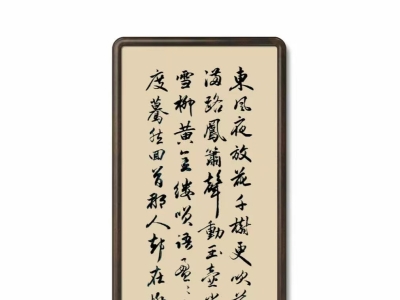 東風夜放花千樹更吹
滿路鳳簫聲動玉壺
雪柳黃金縷笑語盈盈
度驀然回首那人卻在